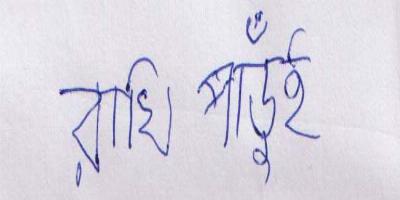 রাখি পাড়ুঁই